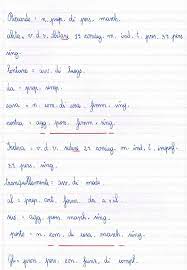 = n. prop. di pers. masch.
abita = v. d. v. abitare 1ª coniug. m. ind. t. pres. 3ª pers.
sing.
lontano = avv. di luogo.
da = prep. simp.
casa = n. com. di cosa femm. sing.
nostra = agg. poss. femm. sing.
Andava = v. d. v. andare 1ª coniug. m. ind. t. imperf.
3ª pers. sing.
tranquillamente = avv. di modo.
al = prep. art. form. da a + il
suo = agg. poss. masch. sing.
posto = n. com. di cosa masch. sing.
Gli = pron. pers. con funz. di compl.